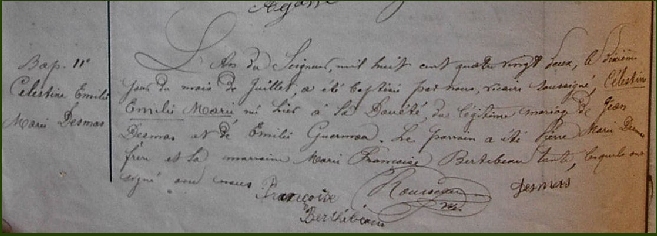 Bap. 11e
Célestine Emilie
Marie Desmas
L'An du Seigneur, mil huit cent quatre vingt deux, le dixième
jour du mois de Juillet, a été baptisé par nous, vicaire soussigné, Célestin
Emilie Marie né hier à la du légitime mariage de Jean
Desmas et de Emilie Le parrain a été Pierre Marie Desmas
frère et la marraine Marie Françoise Bertebeau tante, lesquels ont
signé avec nous
Françoise
Rousseau
vic.